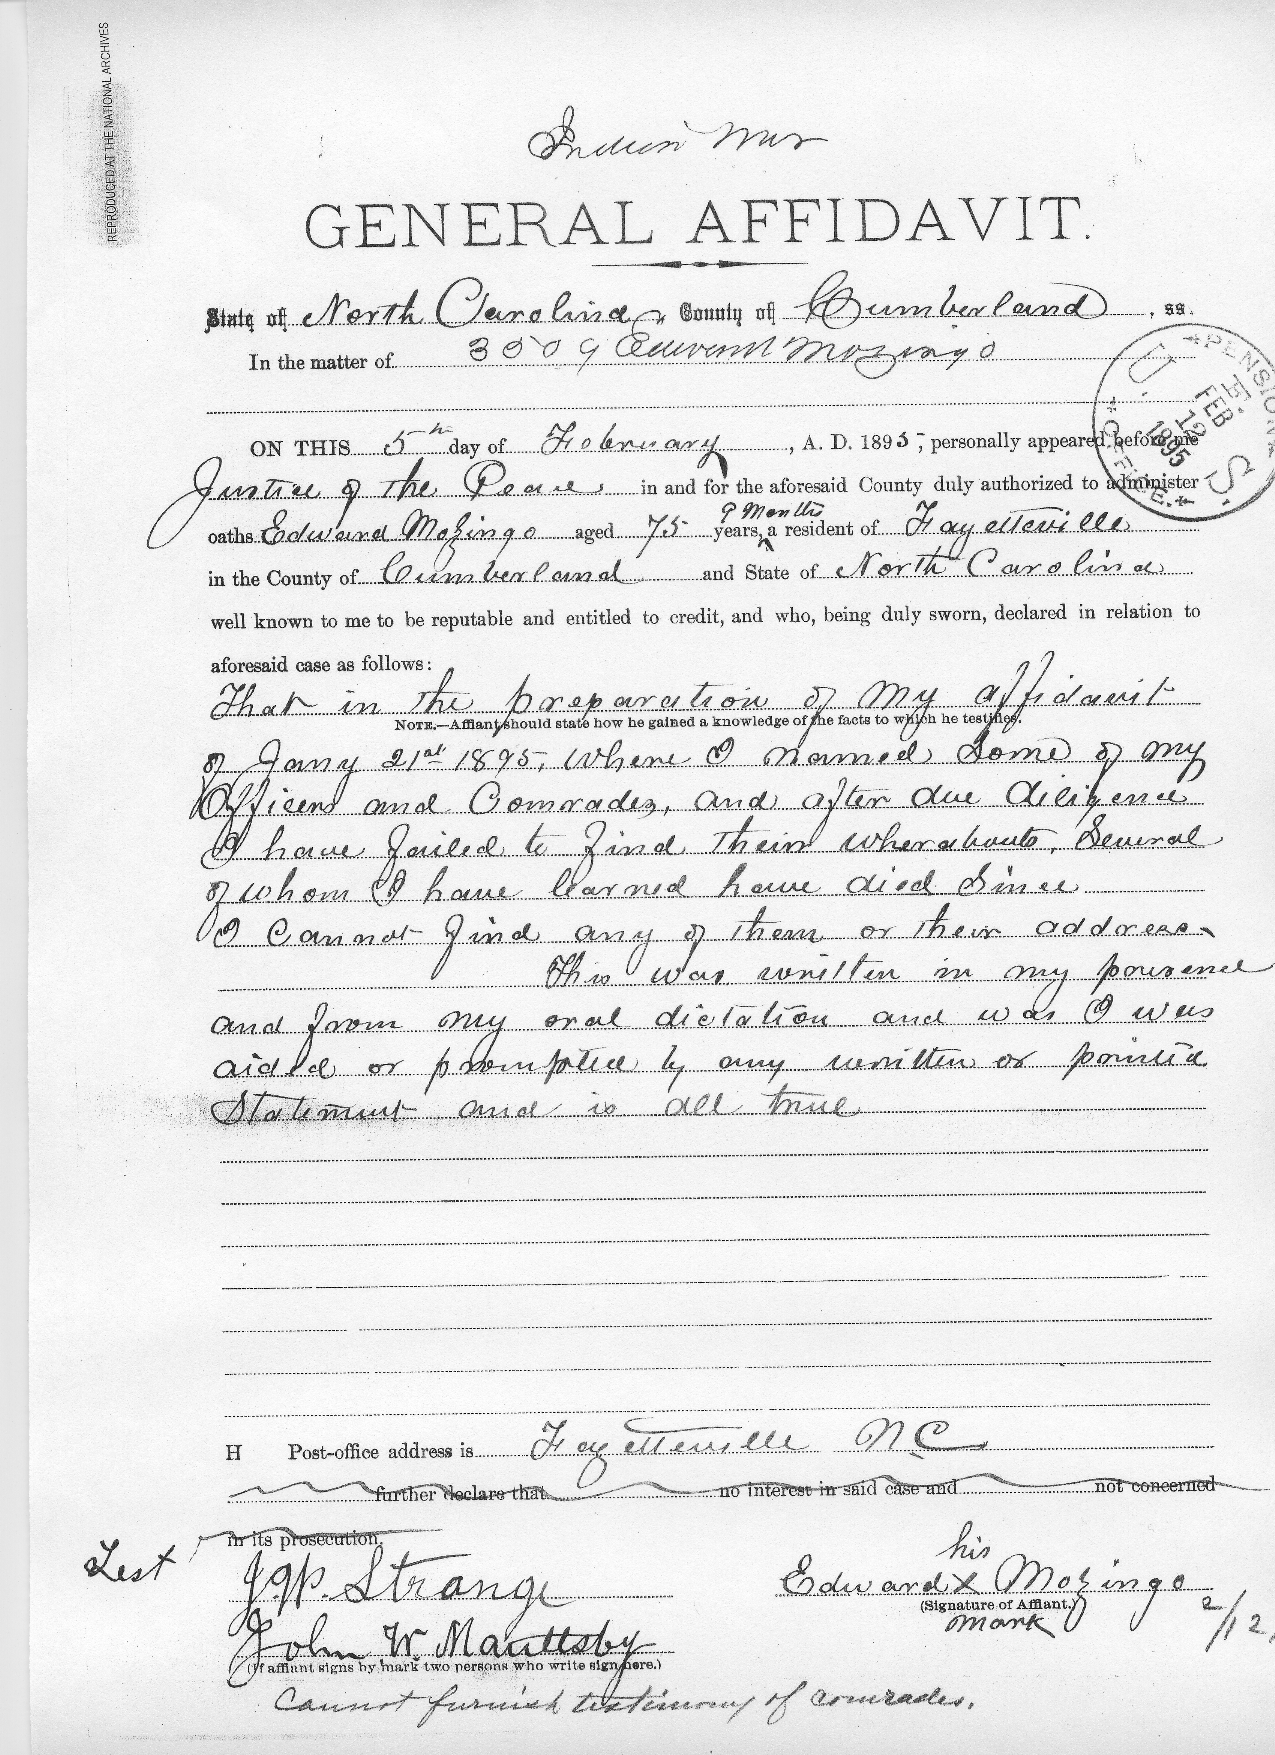 REPRODUCED AT THE NATIONAL ARCHIVES
Indian War
GENERAL AFFIDAVIT.
State of North Carolina, County of Cumberland, ss.
In the matter of 3509 Edward Mozingo
U. S. PENSION OFFICE. FEB 12 1895
ON THIS 5th day of February, A. D. 1895, personally appeared before me
Justice of the Peace in and for the aforesaid County duly authorized to administer
9 Months
oaths Edward Mozingo aged 75 years, a resident of Fayetteville
in the County of Cumberland and State of North Carolina
well known to me to be reputable and entitled to credit, and who, being duly sworn, declared in relation to
aforesaid case as follows:
That in the preparation of my affidavit
NOTE.—Affiant should state how he gained a knowledge of the facts to which he testifies.
of Jany 21st 1895, where I named Some of my
Officers and Comrades, and after due diligence
I have failed to find their wherabouts, Several
of whom I have learned have died Since
I Cannot find any of them or their address.
This was written in my presence
and from my oral dictation and was I was
aided or prompted by any written or printed
Statement and is all true
H Post-office address is Fayetteville N.C.
further declare that no interest in said case and not concerned
in its prosecution.
Test
J. W. Strange
his
Edward X Mozingo
(Signature of Affiant.)
mark
2/12,
John W. Maultsby
(If affiant signs by mark two persons who write sign here.)
Cannot furnish testimony of comrades.